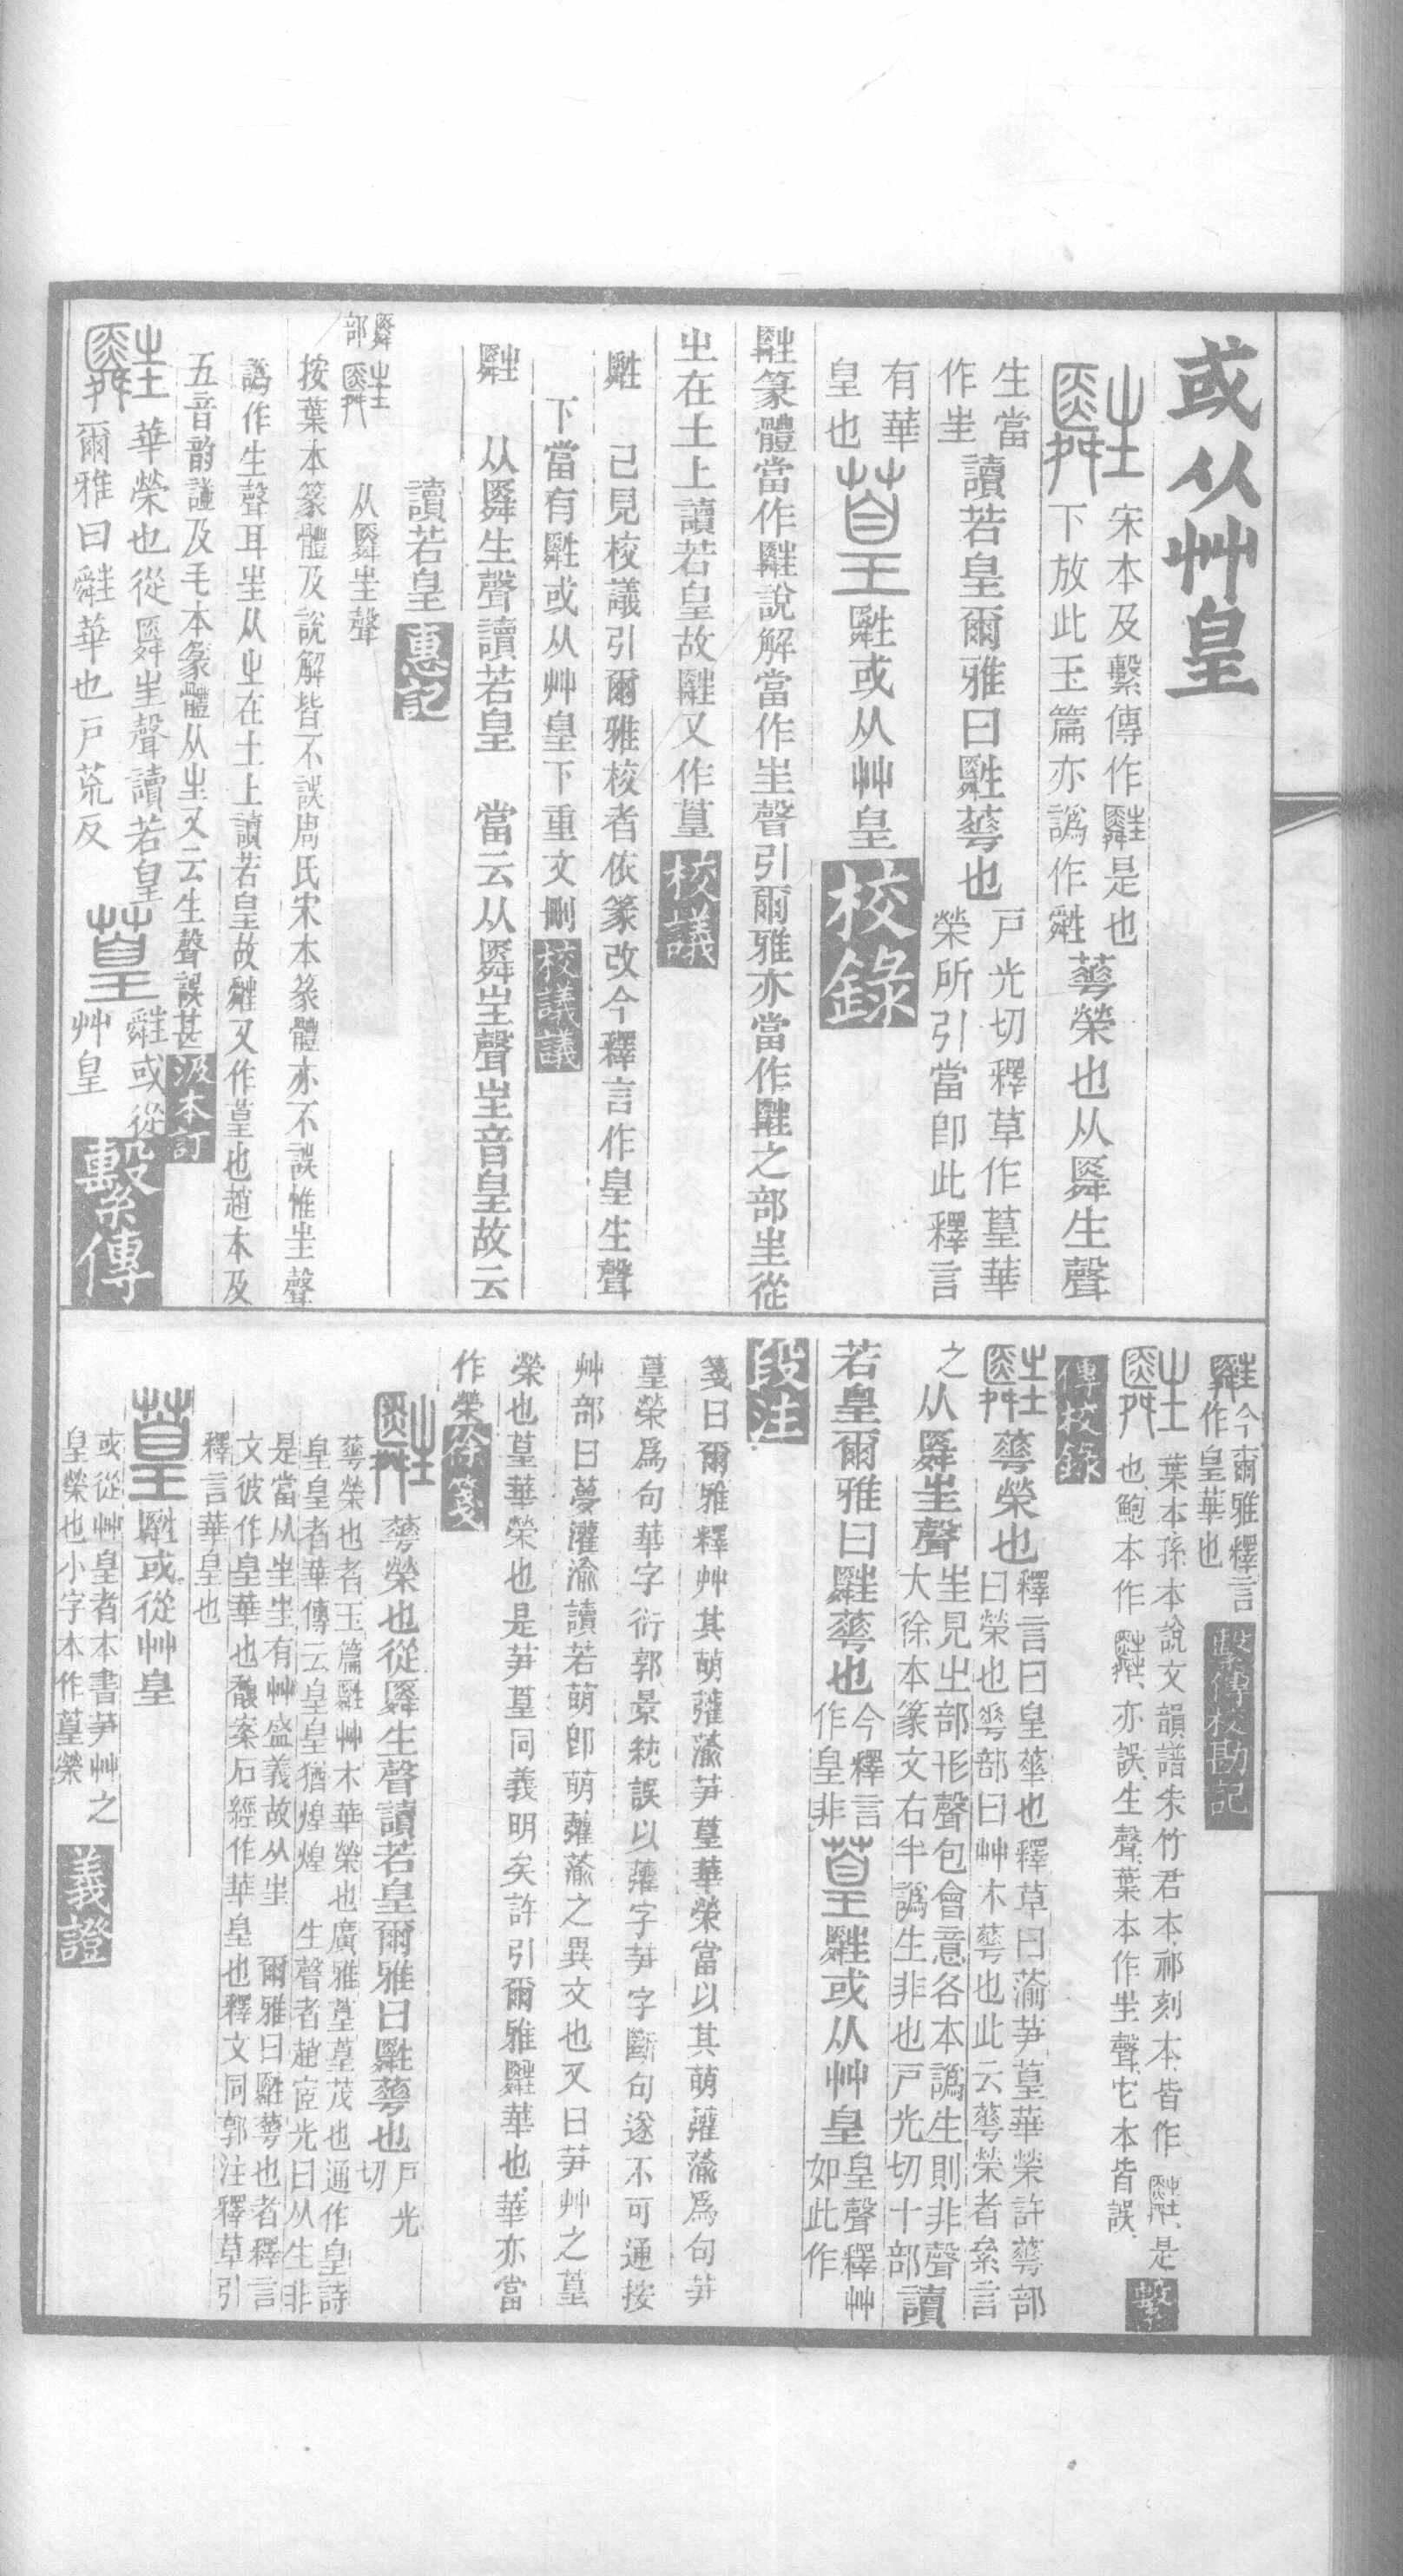 或从艸皇
宋本及繫傳作𦿏是也
下放此玉篇亦譌作𦿏
蕚榮也从舜生聲
生當
作㞷
讀若皇爾雅曰𦿏蕚也
戶光切釋草作葟華
榮所引當卽此釋言
有華
皇也
葟 𦿏或从艸皇 校錄
𦿏篆體當作𦿏說解當作㞷聲引爾雅亦當作𦿏之部㞷從
㞢在土上讀若皇故𦿏又作葟 校議
𦿏 已見校議引爾雅校者依篆改今釋言作皇生聲
下當有𦿏或从艸皇下重文刪 校議議
𦿏 从舜生聲讀若皇 當云从舜㞷聲㞷音皇故云
讀若皇 惠記
舜部 从舜㞷聲
按葉本篆體及說解皆不誤周氏宋本篆體亦不誤惟㞷聲
譌作生聲耳㞷从㞢在土上讀若皇故𦿏又作葟也趙本及
五音韵譜及毛本篆體从㞷又云生聲誤甚 汲本訂
華榮也從舜㞷聲讀若皇
爾雅曰𦿏華也戶荒反
葟 𦿏或從
艸皇 繫傳
今爾雅釋言
作皇華也 繫傳校勘記
葉本孫本說文韻譜朱竹君本祁刻本皆作 是 繫
也鮑本作 亦誤生聲葉本作㞷聲它本皆誤
傳校錄
蕚榮也
釋言曰皇華也釋草曰蕍芛葟華榮許蕚部
曰榮也㠭部曰艸木蕚也此云蕚榮者絫言
之从舜㞷聲
㞷見㞢部形聲包會意各本譌生則非聲
大徐本篆文右半譌生非也戶光切十部
讀
若皇爾雅曰𦿏蕚也
今釋言
作皇非
葟 𦿏或从艸皇
皇聲釋艸
如此作
段注
箋曰爾雅釋艸其萌虇蕍芛葟華榮當以其萌虇蕍爲句芛
葟榮爲句華字衍郭景純誤以虇字芛字斷句遂不可通按
艸部曰夢灌渝讀若萌卽萌虇蕍之異文也又曰芛艸之葟
榮也葟華榮也是芛葟同義明矣許引爾雅𦿏華也華亦當
作榮 徐箋
蕚榮也從舜生聲讀若皇爾雅曰𦿏蕚也
戶光
切
蕚榮也者玉篇𦿏艸木華榮也廣雅葟葟茂也通作皇詩
皇皇者華傳云皇皇猶煌煌 生聲者趙宧光曰从生非
是當从㞷㞷有艸盛義故从㞷 爾雅曰𦿏蕚也者釋言
文彼作皇華也馥案石經作華皇也釋文同郭注釋草引
釋言華皇也
葟 𦿏或從艸皇
或從艸皇者本書芛艸之
皇榮也小字本作葟榮 義證